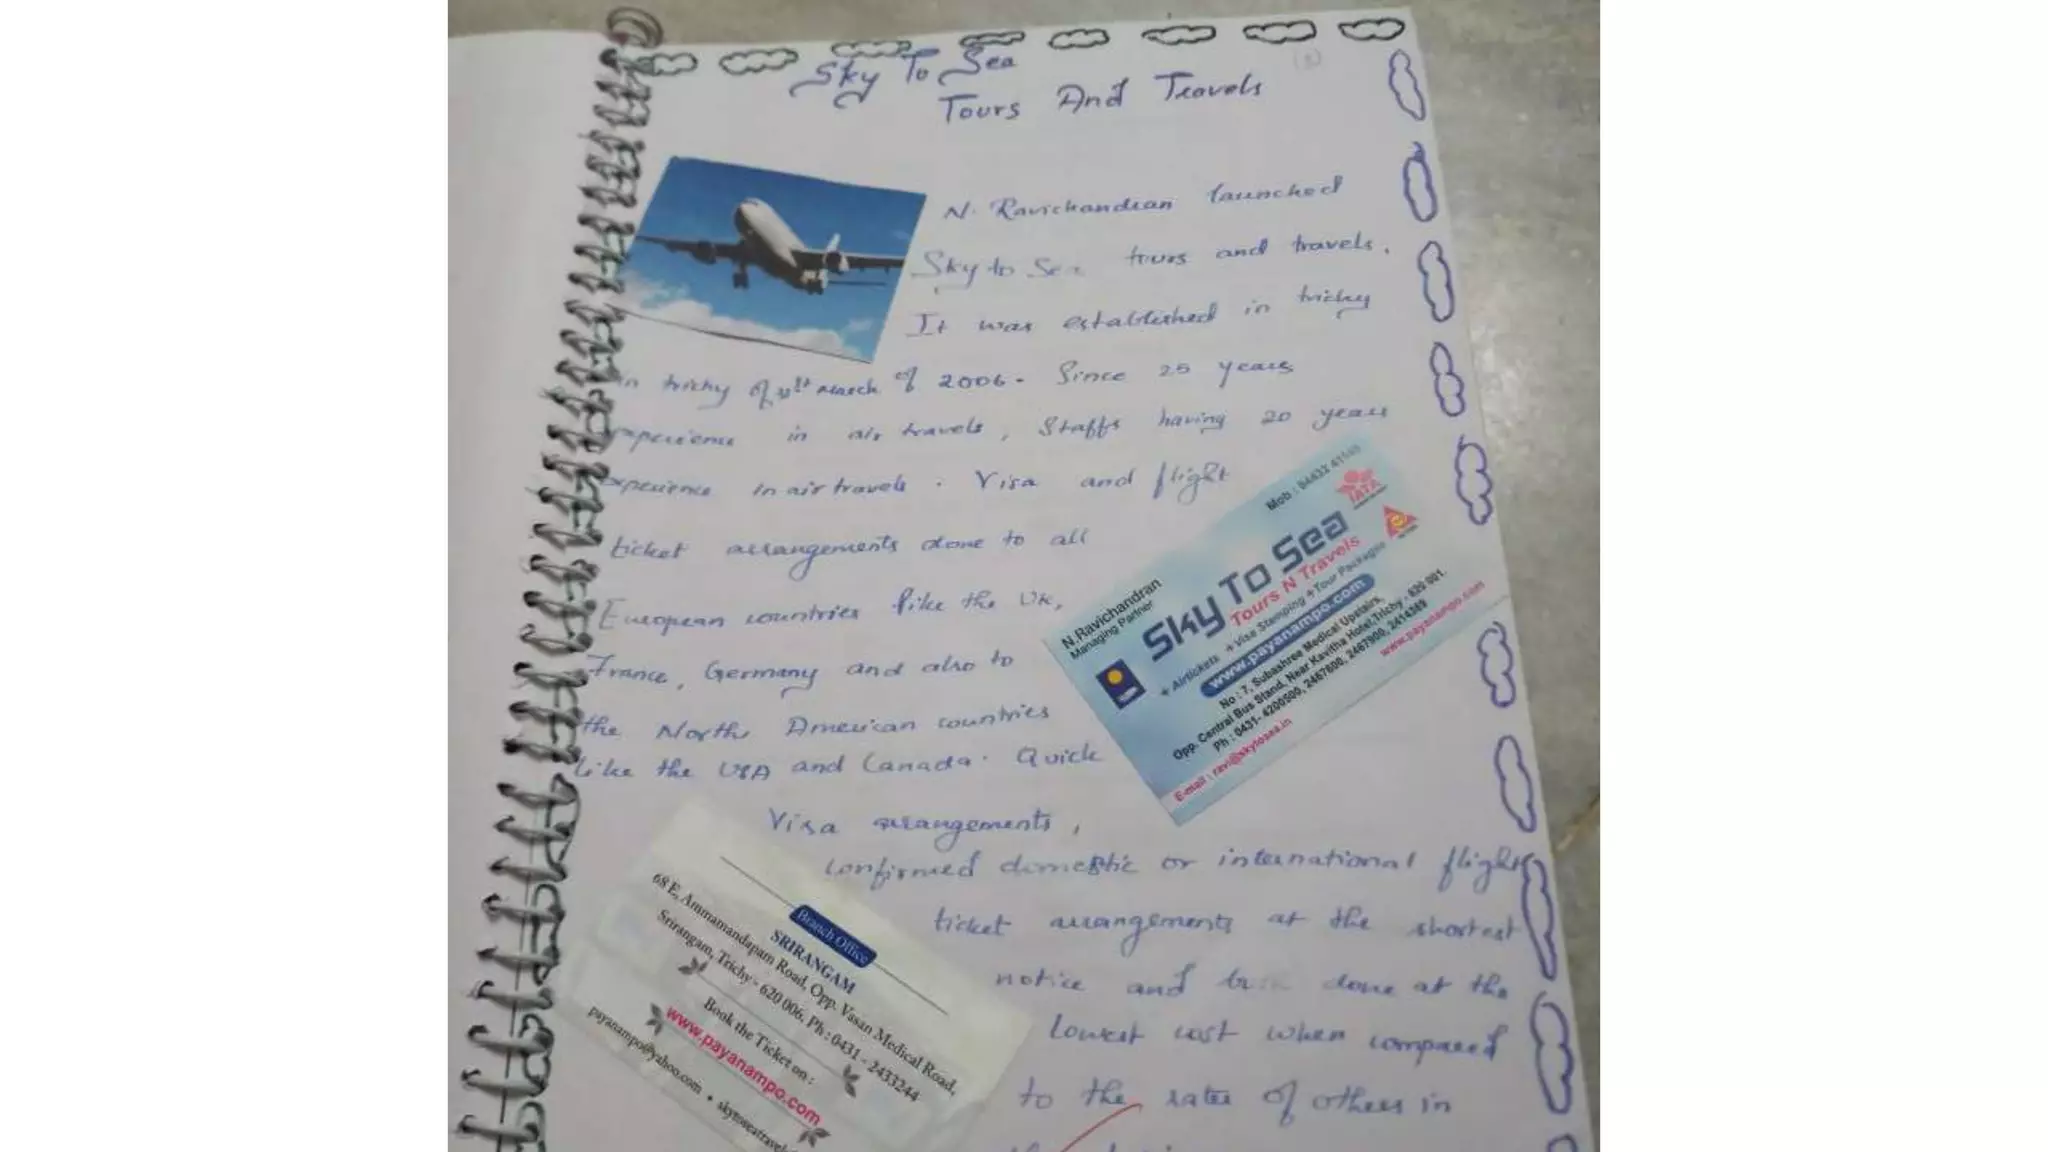 Sky To Sea
Tours And Travels
N. Ravichandran launched
Sky to Sea tours and travels.
It was established in trichy
in trichy of 31st march of 2006. Since 25 years
experience in air travels, Staffs having 20 years
experience in air travels. Visa and flight
ticket arrangements done to all
European countries like the UK,
France, Germany and also to
the North American countries
like the USA and Canada. Quick
Visa arrangements,
confirmed domestic or international flight
ticket arrangements at the shortest
notice and done at the
lowest cost when compared
to the rates of others in
Mob : 94432
IATA
N.Ravichandran
Managing Partner
Sky To Sea
Tours N Travels
+ Airtickets + Visa Stamping + Tour Packages
www.payanampo.com
No : 7, Subashree Medical Upstairs,
Opp. Central Bus Stand, Near Kavitha Hotel, Trichy - 620 001.
Ph : 0431- 4200500, 2467600, 2467900, 2414389
E-mail : ravi@skytosea.in www.payanampo.com
Branch Office
SRIRANGAM
68 E, Ammamandapam Road, Opp. Vasan Medical Road,
Srirangam, Trichy - 620 006, Ph : 0431 - 2433244
Book the Ticket on :
www.payanampo.com
payanampo@yahoo.com •